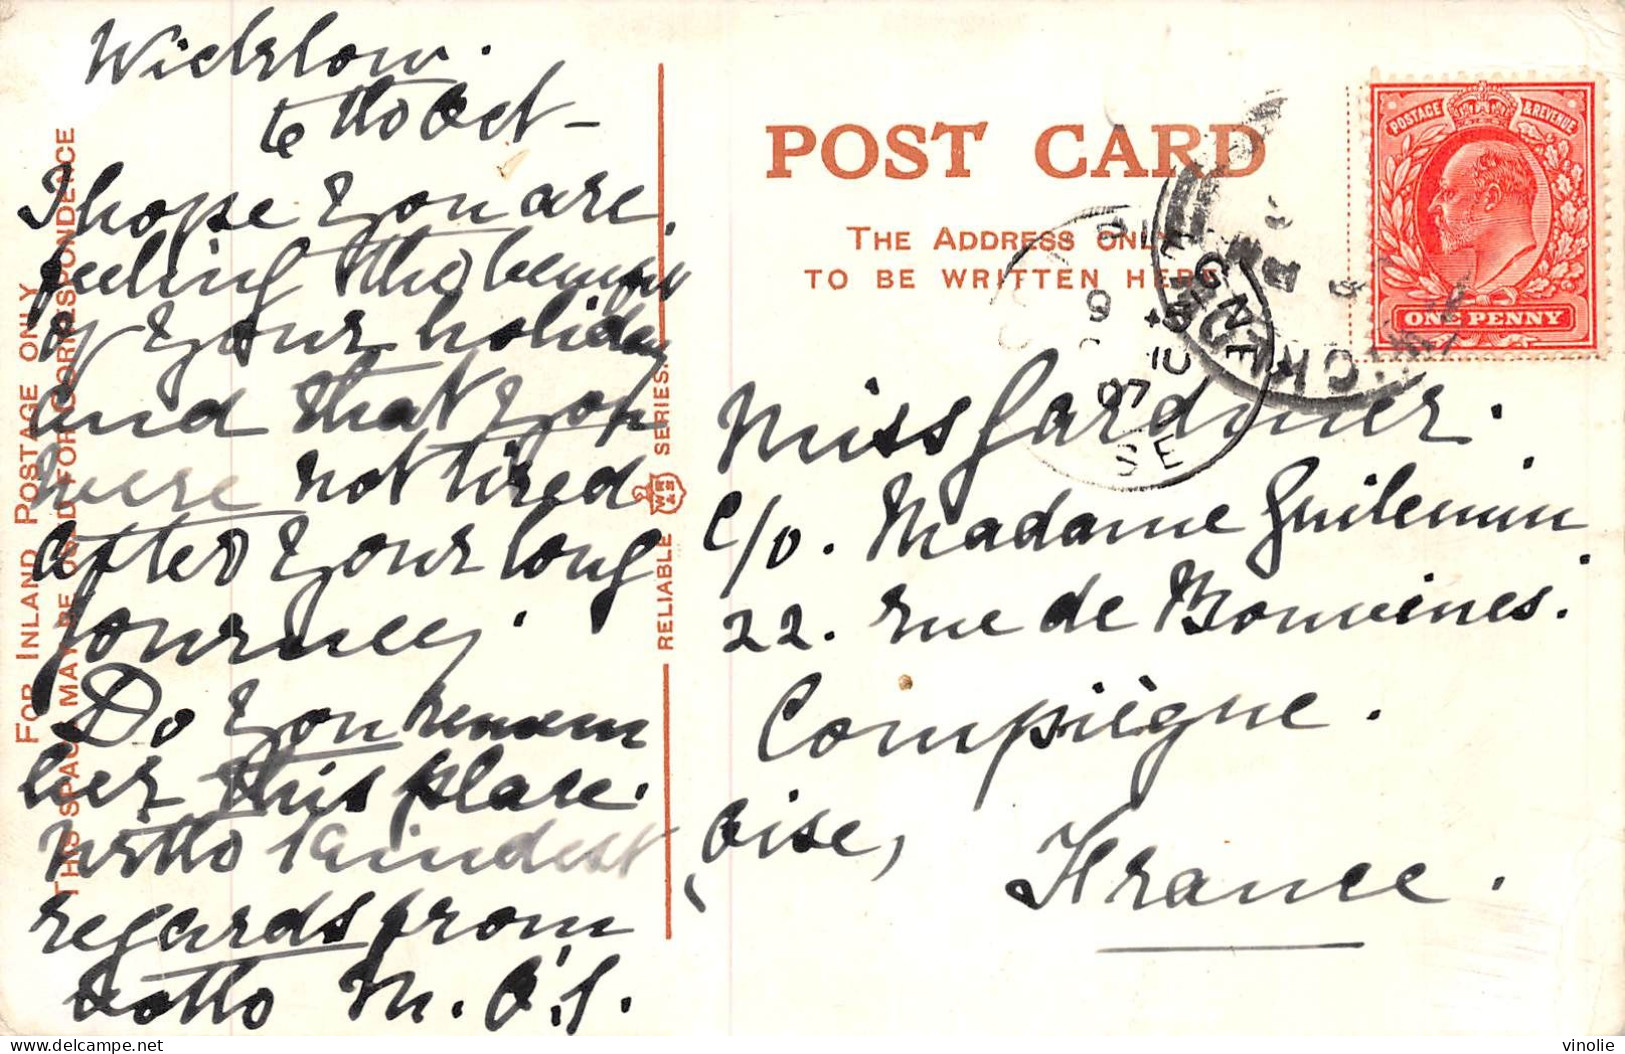 Wicklow.
6th Oct -
I hope you are
feeling the benefit
of your holiday
and that you
were not tired
after your long
journey.
Do you remem
ber this place.
With kindest
regards from
M. O'S.
FOR INLAND POSTAGE ONLY
THIS SPACE MAY BE USED FOR CORRESPONDENCE
RELIABLE
WR
& S
SERIES.
POST CARD
THE ADDRESS ONLY
TO BE WRITTEN HERE
POSTAGE & REVENUE
ONE PENNY
COMPIEGNE
9
10
07
OISE
WICKLOW
Miss Gardiner.
C/o. Madame Guilemin
22. rue de Bouvines.
Compiègne.
(Oise,
France.
vinolie
delcampe.net